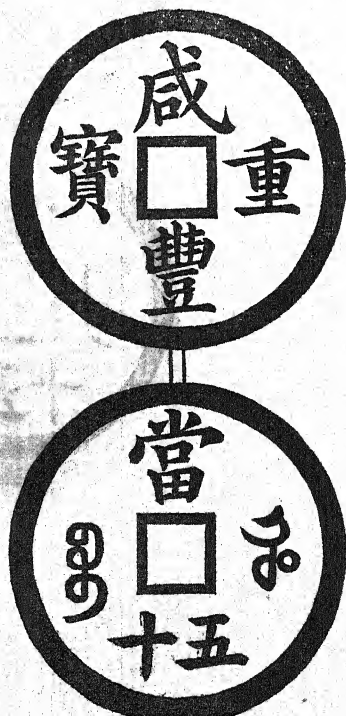 咸豐重寶
當五十
ᠪᠣᠣ